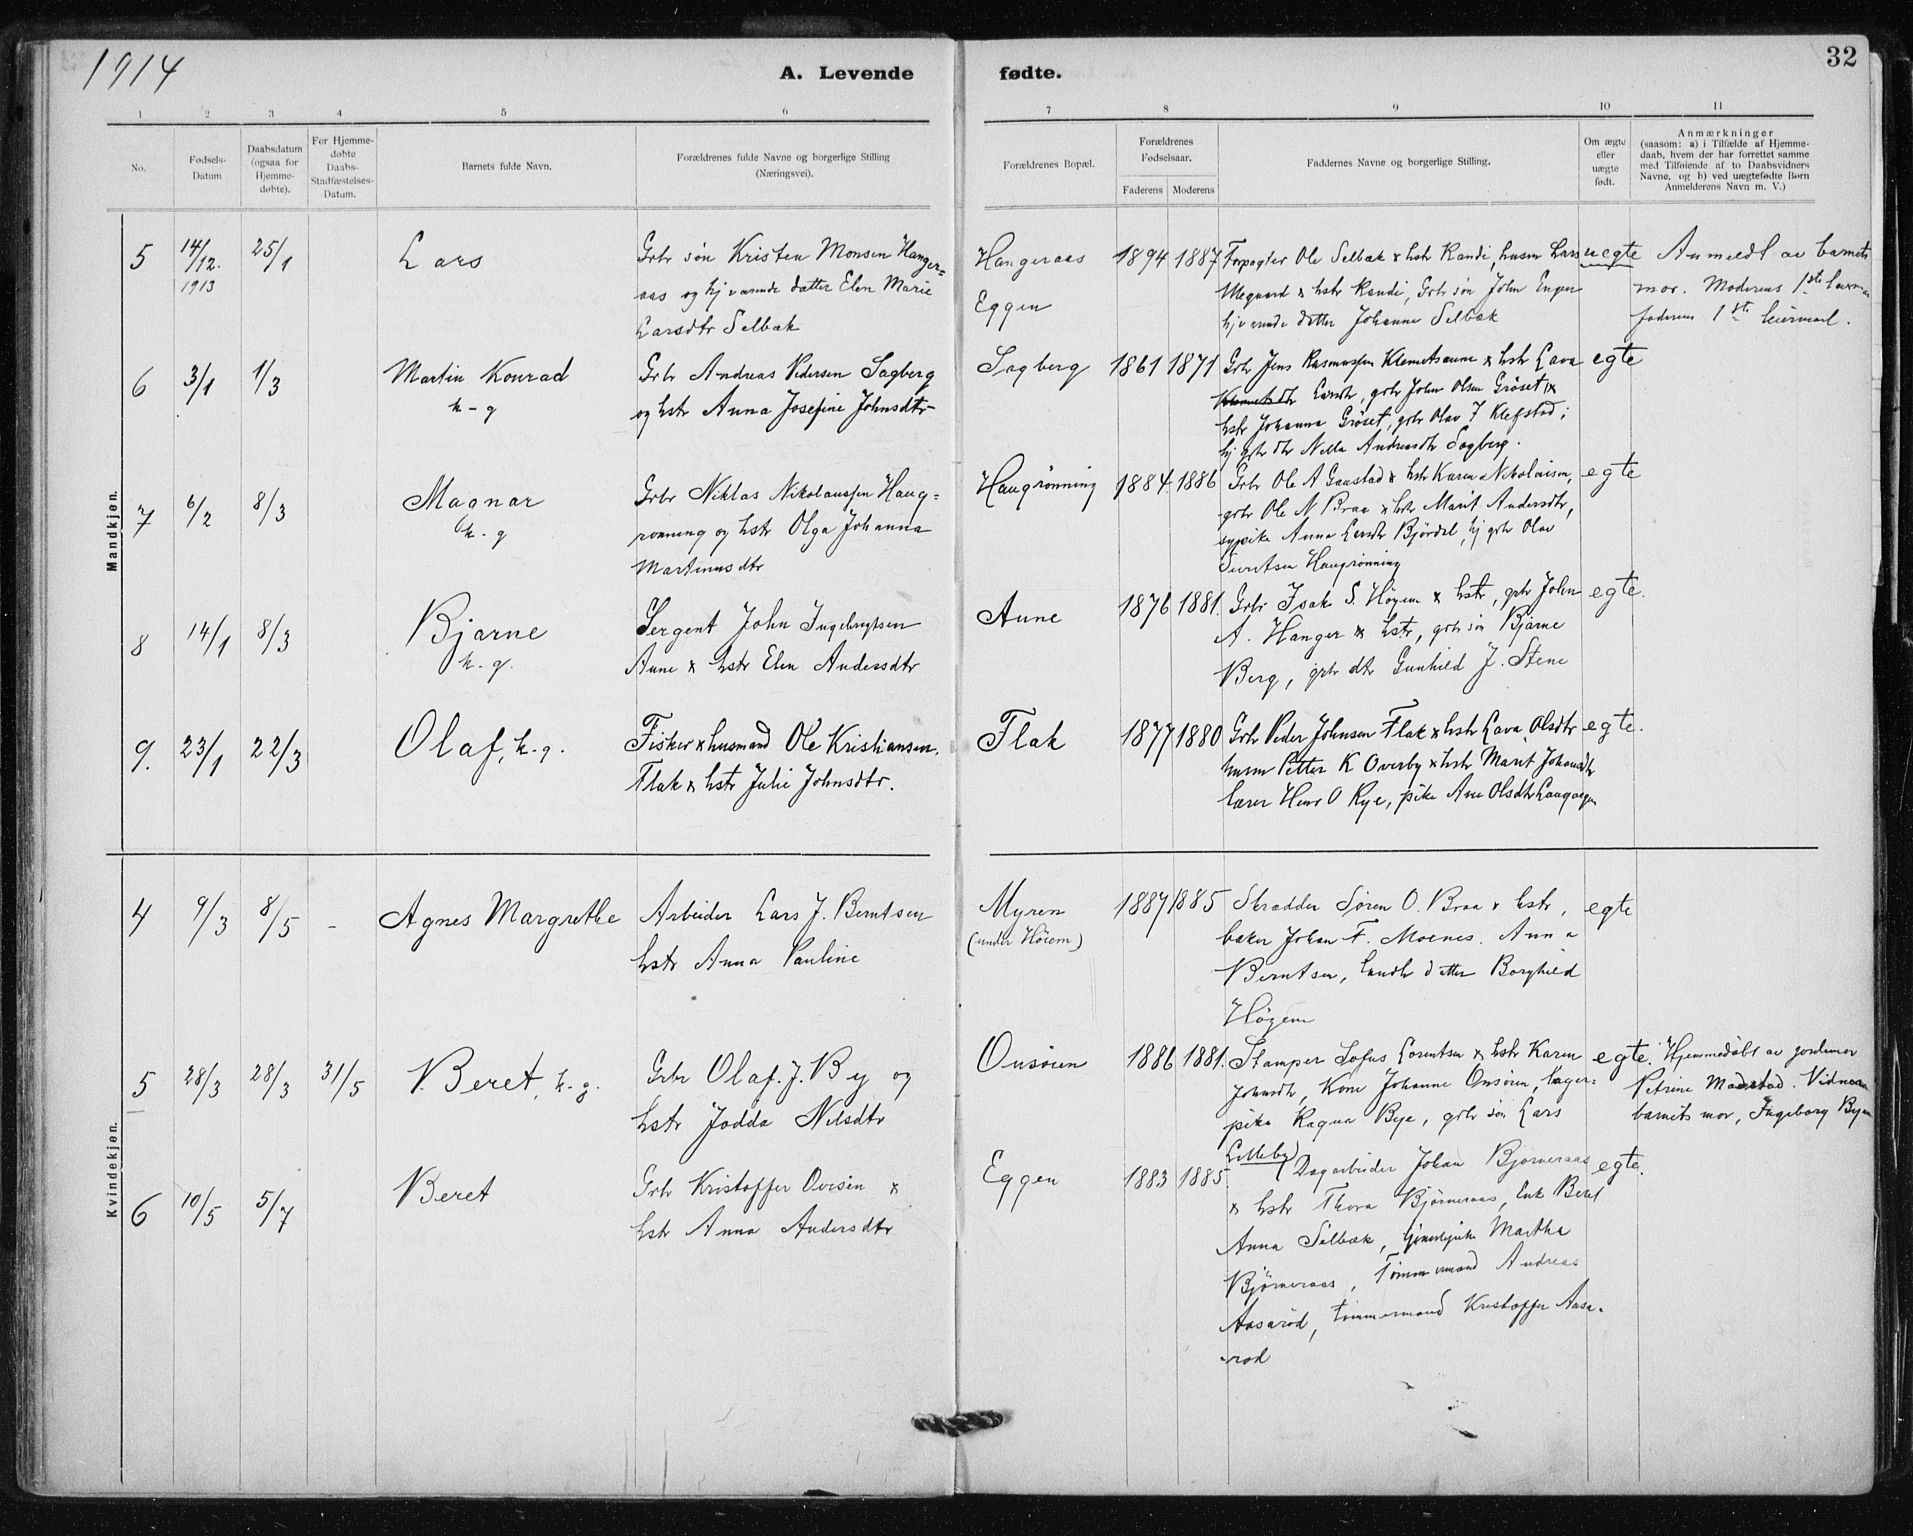 1914
A. Levende fødte.
32
1 2 3 4 5 6 7 8 9 10 11
No.
Fødsels-
Datum
Daabsdatum
(ogsaa for
Hjemme-
døbte).
For Hjemme-
døbte
Daabs-
Stadfæstelses-
Datum.
Barnets fulde Navn.
Forældrenes fulde Navne og borgerlige Stilling
(Næringsvei).
Forældrenes Bopæl.
Forældrenes
Fødselsaar.
Faderens Moderens
Faddernes Navne og borgerlige Stilling.
Om ægte
eller
uægte
født.
Anmærkninger
(saasom: a) i Tilfælde af Hjemme-
daab, hvem der har forrettet samme
med Tilføiende af to Daabsvidners
Navne, og b) ved uægtefødte Børn
Anmelderens Navn m. V.)
Mandkjøn.
5
14/12.
1913
25/1
Lars
Grbr søn Kristen Monsen Hanger-
aas og hj værende datter Elen Marie
Larsdtr Selbæk
Hangeraas
Eggen
1894 1887
Forpagter Ole Selbæk x hstr Randi, husm Lars
x hstr Randi, Grbr søn John
hjværende datter Johanne Selbæk
uegte
Anmeldt av barnets
mor. Moderens 1ste
faderens 1ste leiermaal.
6
3/1
1/3
Martin Konrad
k-g
Grbr Andreas Pedersen Sagberg
og hstr Anna Josefine Johnsdtr
Sagberg
1861 1871
Grbr Jens Rasmussen Klemetsaune x hstr Lava
Larsdtr, grbr John Olsen Grøset x
hstr Johanna Grøset, grbr Olav J Klefstad;
hj grbr dtr Nella Andreasdtr Sagberg.
egte
7
6/2
8/3
Magnar
k-g
Grbr Niklas Nikolaussen Haug-
rønning og hstr Olga Johanna
Martinusdtr
Haugrønning
1884 1886
Grbr Ole A Gaustad x hstr Karen Nikolaisen,
grbr Ole N Braa x hstr Marit Andersdtr,
sypike Anna Larsdtr Bjørdal, hj grbr Olav
Haugrønning
egte
8
14/1
8/3
Bjarne
k-g.
Sergent John Ingebrigtsen
Aune x hstr Elen Andersdtr
Aune
1876 1881.
Grbr Isak S. Høyem x hstr, grbr John
A. Hanger x hstr, grbr søn Bjarne
Berg, grbr dtr Gunhild J. Stene
egte.
9.
23/1
22/3
Olaf, k-g.
Fisker x husmand Ole Kristiansen
Flak x hstr Julie Johnsdtr.
Flak
1877 1880
Grbr Peder Johnsen Flak x hstr Lava Olsdtr
husm Petter K Overby x hstr Marit
lærer O Rye, pike Ane Olsdtr
egte.
Kvindekjøn.
4
9/3
8/5
-
Agnes Margrethe
Arbeider Lars J. Berntsen
hstr Anna Pauline
Myren
(under Høiem)
1887 1885
Skrædder Søren O. Braa x hstr,
baker Johan F. Moenes. Anna
Berntsen, landh datter Borghild
Høyem
egte
5
28/3
28/3
31/5
Beret, k-g.
Grbr Olaf. J. By og
hstr Jodda Nilsdtr
Onsøien
1886 1881.
Stamper Sofus Lorentsen x hstr Karen
Johnsdtr, Kone Johanne Onsøien,
pike Ragna Bye, grbr søn Lars
Lilleby
egte.
Hjemmedøbt av jordemor
Petrine Vidner
barnets mor, Ingeborg Byen
6
10/5
5/7
Beret
Grbr Kristoffer Ovesen x
hstr Anna Andersdtr
Eggen
1883 1885
Dagarbeider Johan Bjørneraas
x hstr Thora Bjørneraas, Enk Beret
Anna Selbæk, tjenestepike Martha
Bjørneraas, Tømmermand Andreas
Aasarød, tømmermand Kristoffer Aasa-
rød
egte.